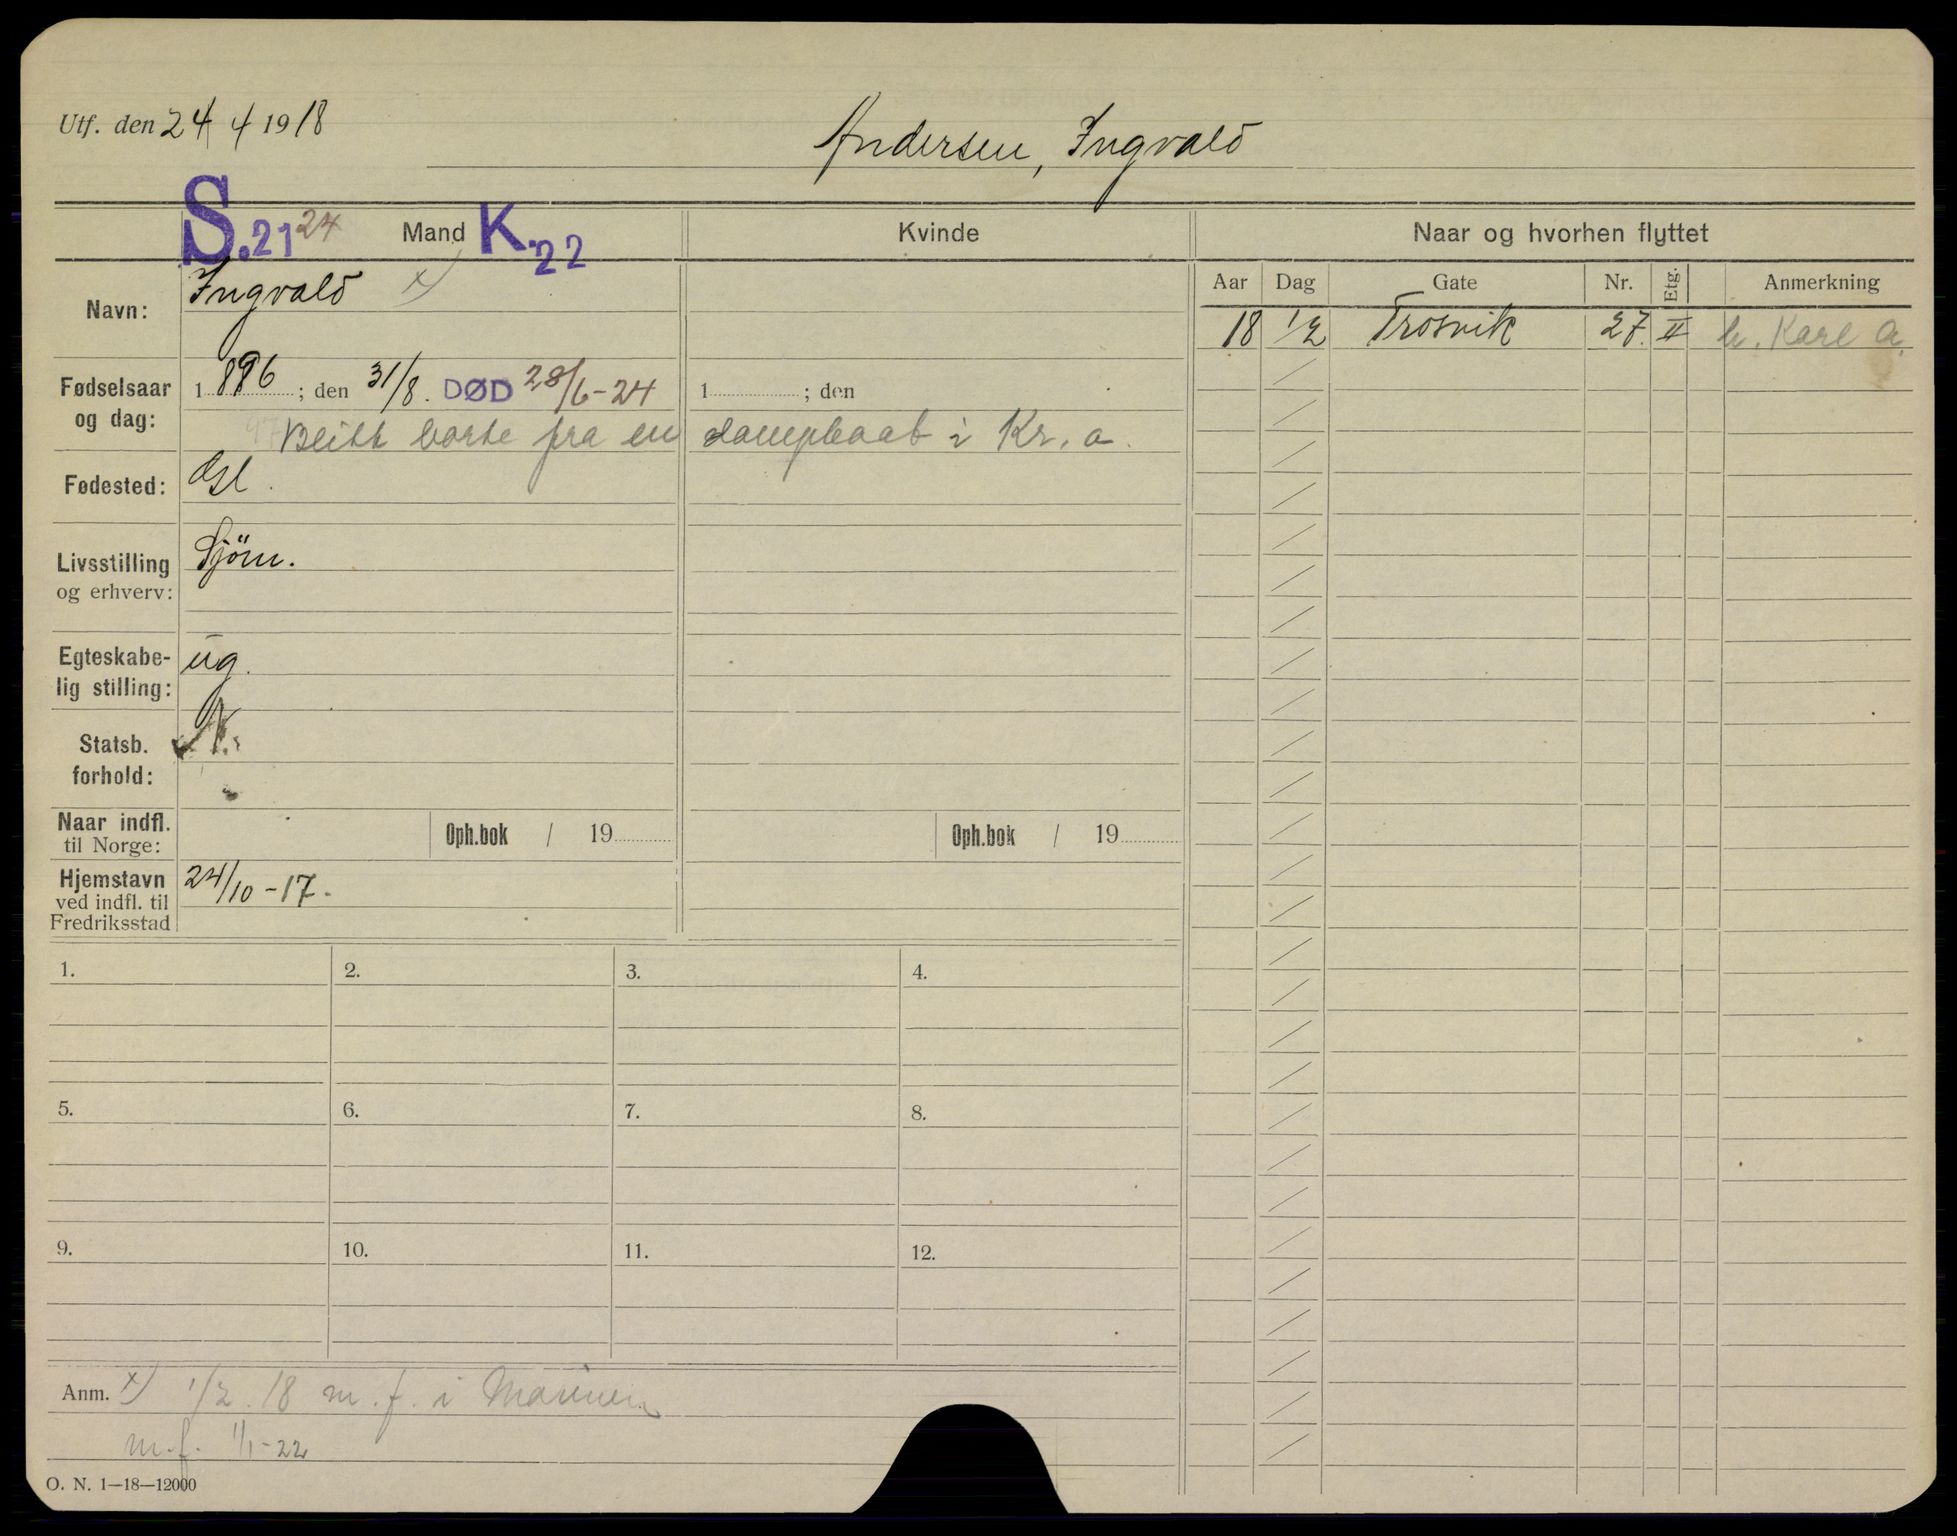 Utf. den 24/4 1918
Andersen, Ingvald
S.21 24 Mand K.22
Kvinde
Naar og hvorhen flyttet
Navn: Ingvald x)
Aar Dag Gate Nr. Etg. Anmerkning
18 1/2 Trosvik 27. II h. Karl A.
Fødselsaar og dag: 1896; den 31/8. DØD 28/6-24
1 ; den
Blitt borte fra en dampbaat i Kr.a.
Fødested: Gl.
Livsstilling og erhverv: Sjöm.
Egteskabe-
lig stilling: ug.
Statsb.
forhold: N.
Naar indfl.
til Norge: Oph.bok / 19
Oph.bok / 19
Hjemstavn
ved indfl. til
Fredriksstad
24/10-17.
1. 2. 3. 4.
5. 6. 7. 8.
9. 10. 11. 12.
Anm. x) 1/2.18 m.f. i Marinen
m.f. 1/1-22
O. N. 1—18—12000